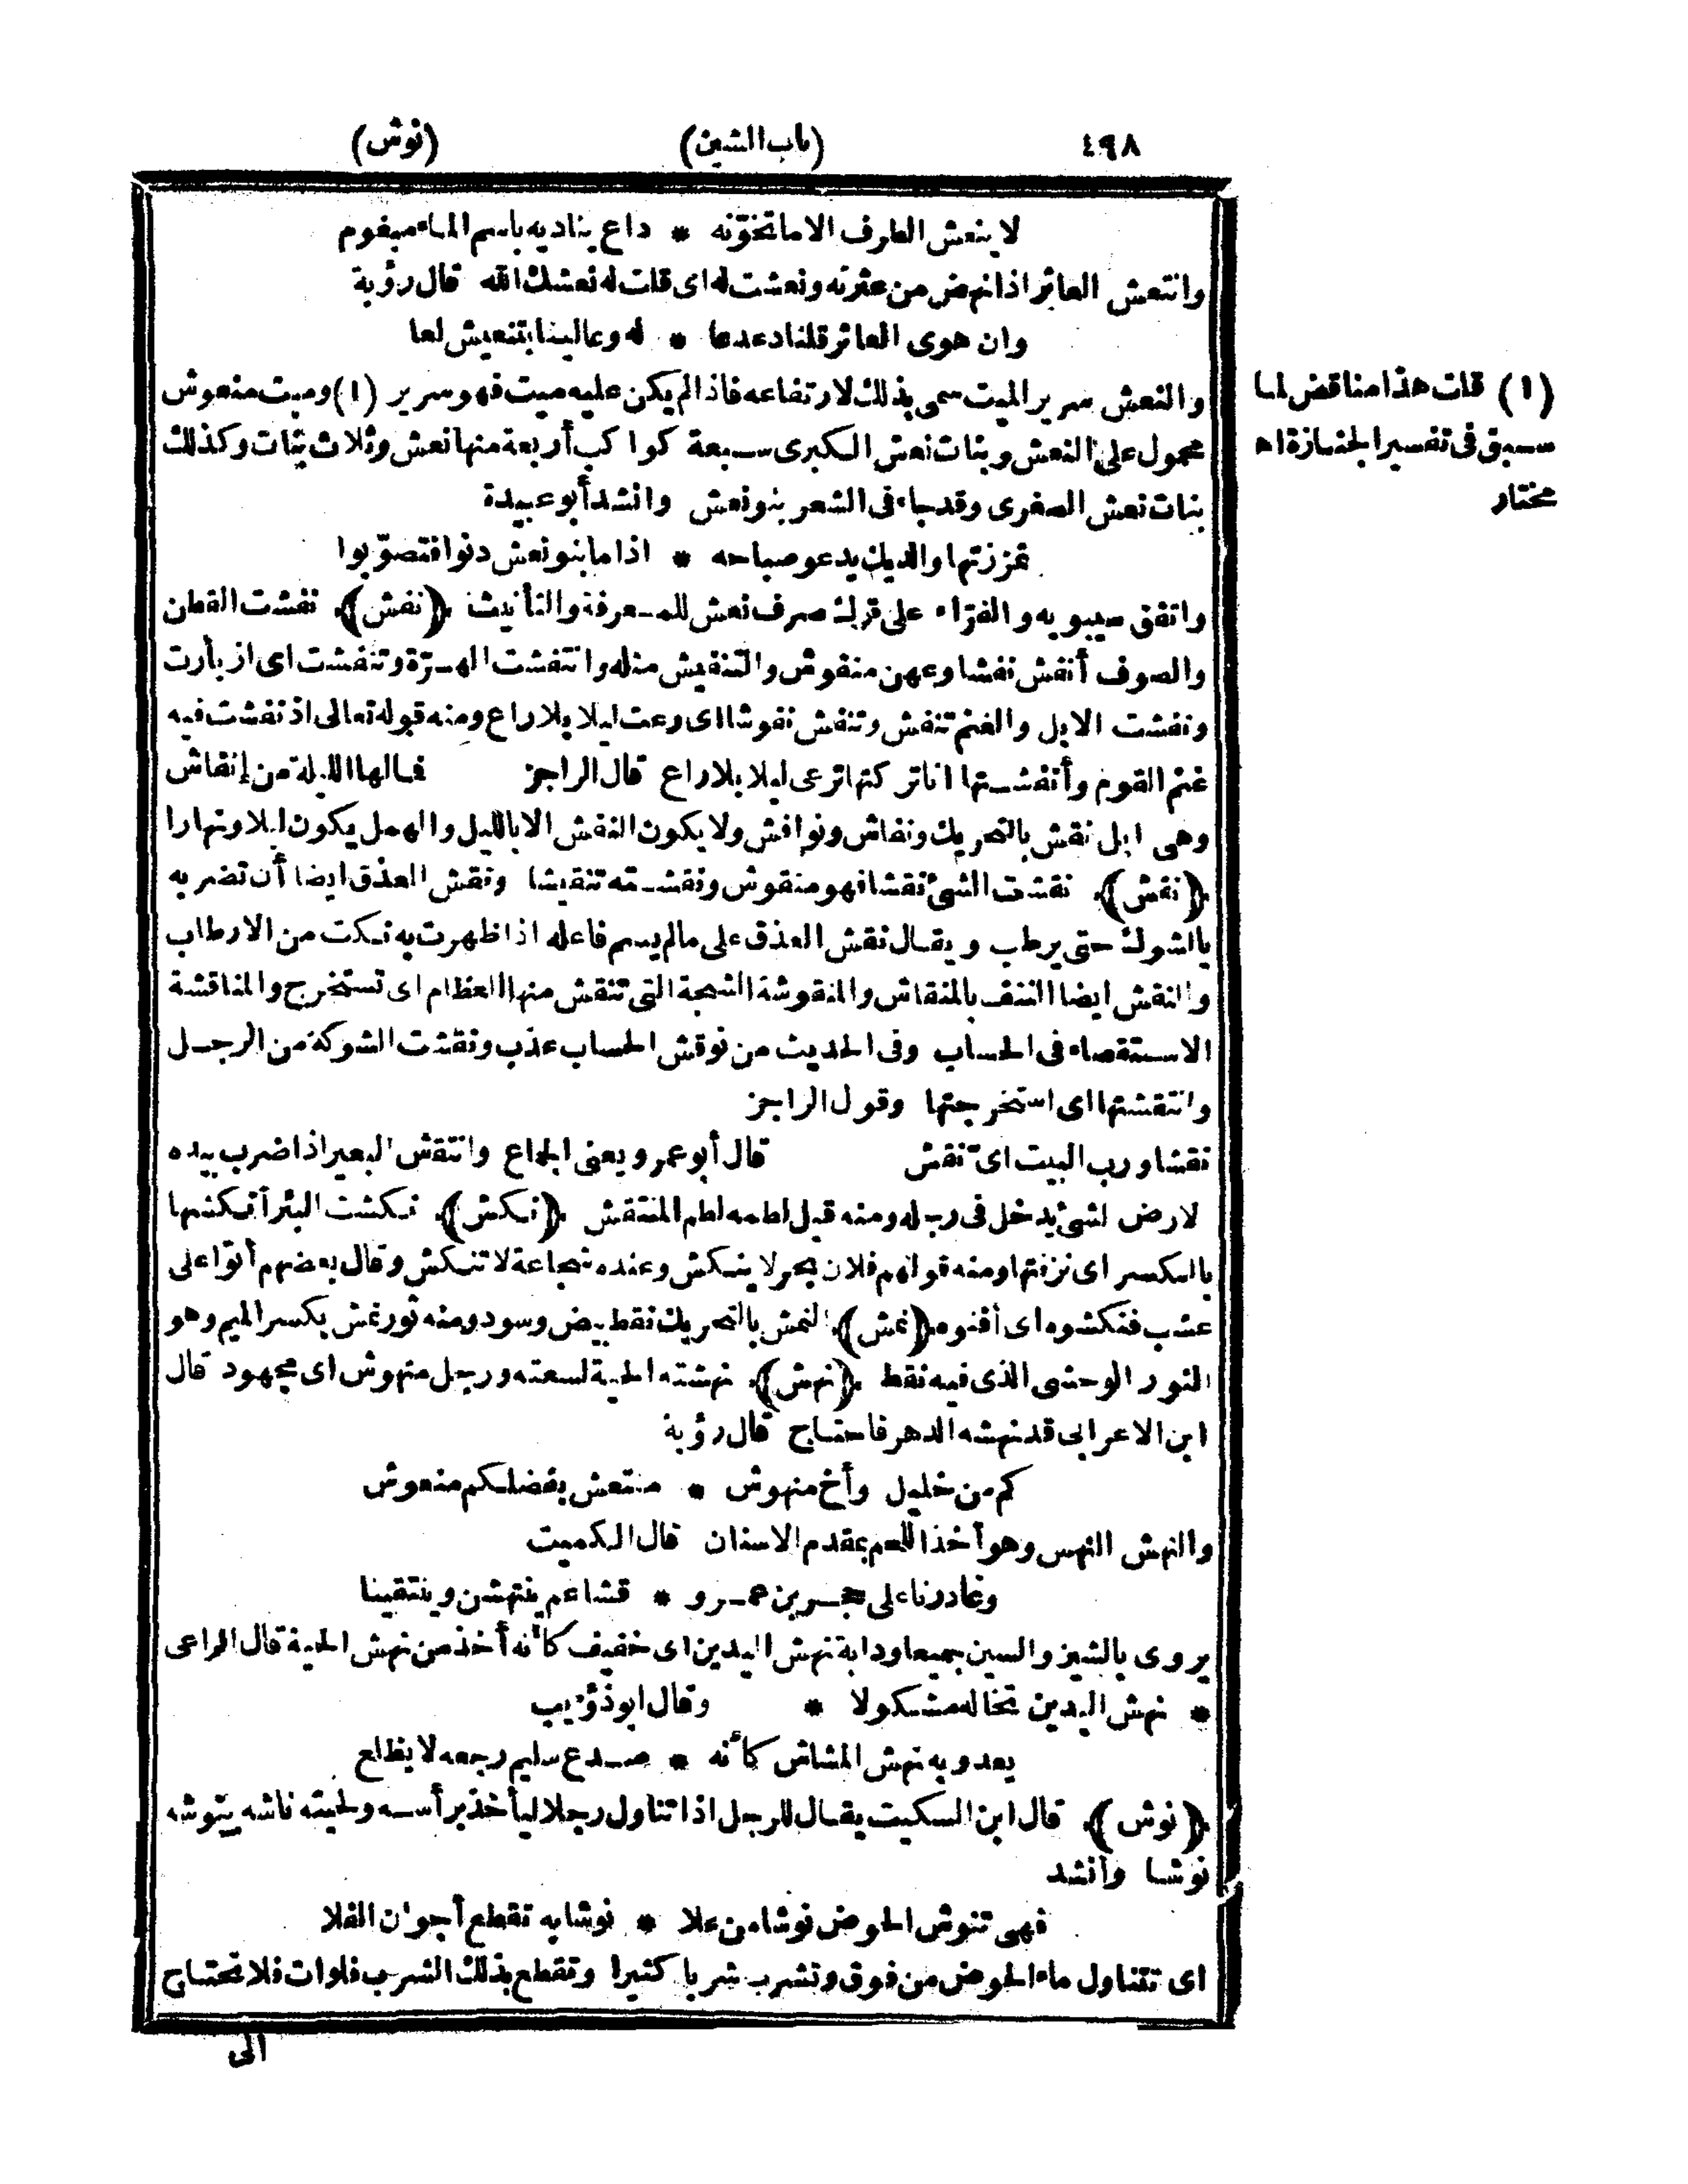 ٤٩٨ (باب الشين) (نوش)
لا ينعش الطرف الا ما تخوّنه * داع يناديه باسم الماء مبغوم
وانتعش العاثر اذا نهض من عثرته ونعشت له اى قلت له نعشك الله قال رؤبة
وان هوى العاثر قلنا دعدعا * له وعالينا بتنعيش لعا
والنعش سرير الميت سمى بذلك لارتفاعه فاذا لم يكن عليه ميت فهو سرير (١) وميت منعوش
محمول على النعش وبنات نعش الكبرى سبعة كواكب أربعة منها نعش وثلاث بنات وكذلك
بنات نعش الصغرى وقد جاء فى الشعر بنو نعش وانشد أبو عبيدة
تمززتها والديك يدعو صباحه * اذا ما بنو نعش دنوا فتصوّبوا
واتفق سيبويه والفرّاء على ترك صرف نعش للمعرفة والتأنيث ﴿نفش﴾ نفشت القطن
والصوف أنفش نفشا وعهن منفوش والتنفيش مثله وانتفشت الهرّة وتنفشت اى ازبأرت
ونفشت الابل والغنم تنفش وتنفش نفوشا اى رعت ليلا بلا راع ومنه قوله تعالى اذ نفشت فيه
غنم القوم وأنفشتها انا تركتها ترعى ليلا بلا راع قال الراجز فمالها الليلة من إنفاش
وهى ابل نفش بالتحريك ونفاش ونوافش ولا يكون النفش الا بالليل والهمل يكون ليلا ونهارا
﴿نقش﴾ نقشت الشئ نقشا فهو منقوش ونقشته تنقيشا ونقش العذق ايضا أن تضربه
بالشوك حتى يرطب ويقال نقش العذق على ما لم يسم فاعله اذا ظهرت به نكت من الارطاب
والنقش ايضا النتف بالمنقاش والمنقوشة الشجة التى تنقش منها العظام اى تستخرج والمناقشة
الاستقصاء فى الحساب وفى الحديث من نوقش الحساب عذب ونقشت الشوكة من الرجل
وانتقشتها اى استخرجتها وقول الراجز
نقشا ورب البيت اى نقش قال أبو عمرو يعنى الجماع وانتقش البعير اذا ضرب بيده
لارض لشئ يدخل فى رجله ومنه قيل لطمه لطم المنتقش ﴿نكش﴾ نكشت البئر أنكشها
بالكسر اى نزفتها ومنه قولهم فلان بحر لا ينكش وعنده شجاعة لا تنكش وقال بعضهم أتوا على
عشب فنكشوه اى أفنوه ﴿نمش﴾ النمش بالتحريك نقط بيض وسود ومنه ثور نمش بكسر الميم وهو
الثور الوحشى الذى فيه نقط ﴿نهش﴾ نهشته الحية لسعته ورجل منهوش اى مجهود قال
ابن الاعرابى قد نهشه الدهر فاحتاج قال رؤبة
كم من خليل وأخ منهوش * منتعش بفضلكم منعوش
والنهش النهس وهو أخذ اللحم بمقدم الاسنان قال الكميت
وغادرنا على حجر بن عمرو * قشاعم ينتهشن وينتقينا
يروى بالشين والسين جميعا ودابة نهش اليدين اى خفيف كأنه أخذ من نهش الحية قال الراعى
* نهش اليدين تخاله مشكولا * وقال ابو ذؤيب
يعدو به نهش المشاش كأنه * صدع سليم رجعه لا يظلع
﴿نوش﴾ قال ابن السكيت يقال للرجل اذا تناول رجلا ليأخذ برأسه ولحيته ناشه ينوشه
نوشا وانشد
فهى تنوش الحوض نوشا من علا * نوشا به تقطع أجواز الفلا
اى تتناول ماء الحوض من فوق وتشرب شربا كثيرا وتقطع بذلك الشرب فلوات فلا تحتاج
الى
(١) قلت هذا مناقض لما
سبق فى تفسير الجنازة اه
مختار